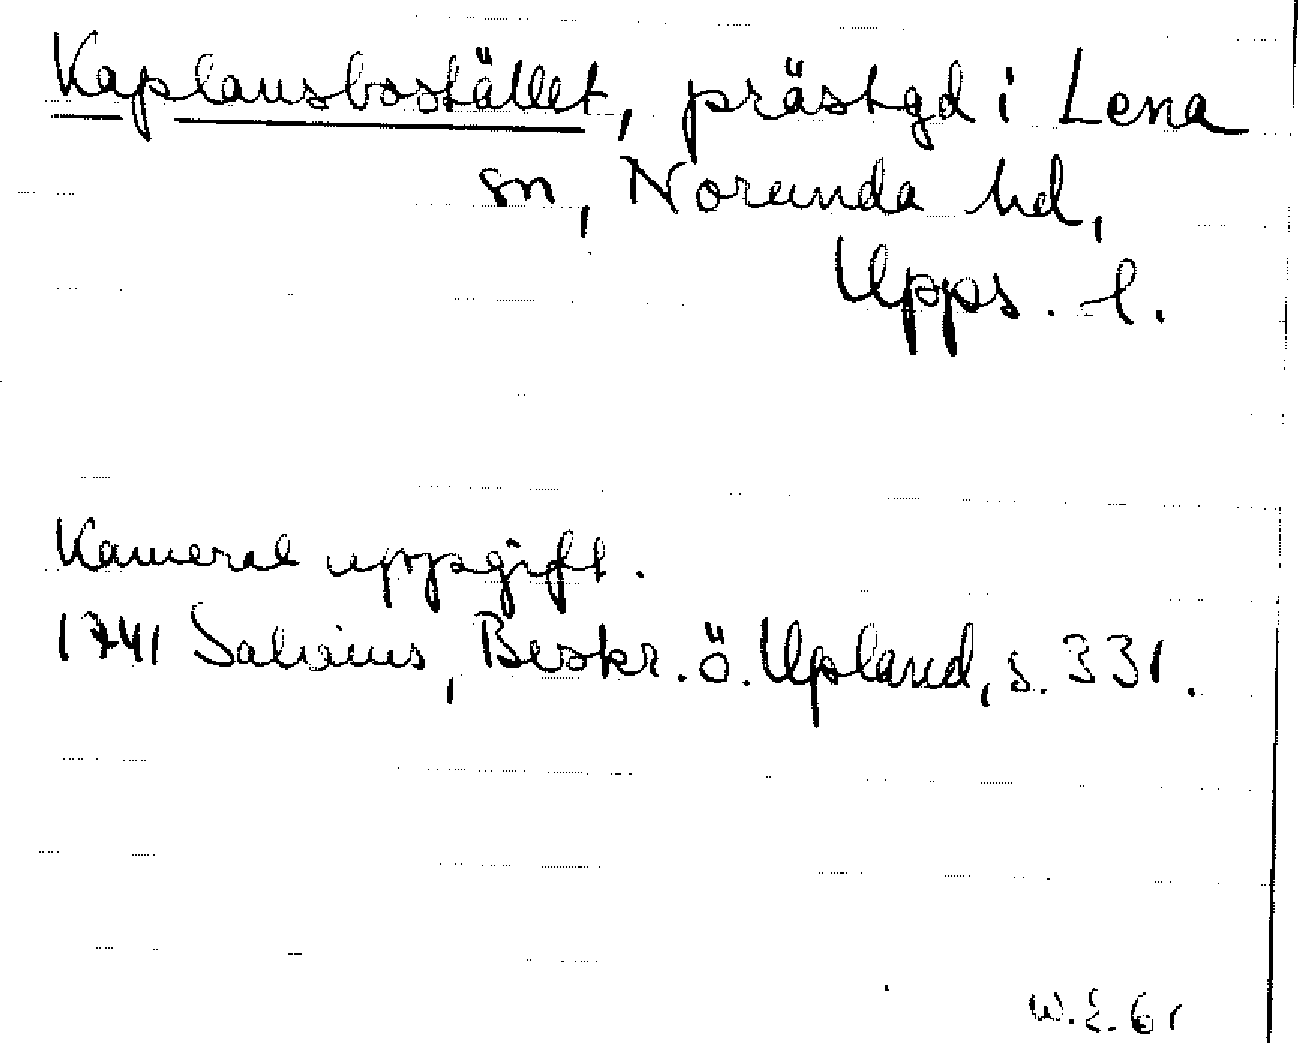 Kaplansbostället, prästgd i Lena
sn, Norunda hd,
Upps. l.
Kameral uppgift.
1741 Salvius, Beskr. ö. Upland, s. 331.
W.E. 61